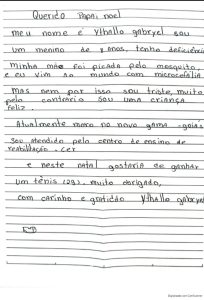 Querido Papai noel
meu nome é Ythallo gabryel sou
um menino de 8 anos, tenho deficiência
minha mãe foi picada pelo mosquito,
e eu vim ao mundo com microcefalia.
mas nem por isso sou triste, muito
pelo contrario sou uma criança
feliz.
Atualmente moro no novo gama-goiás
sou atendido pelo centro de ensino de
reabilitação. CER
e neste natal gostaria de ganhar
um tênis (29). muito obrigado,
com carinho e gratidão Ythallo gabryel